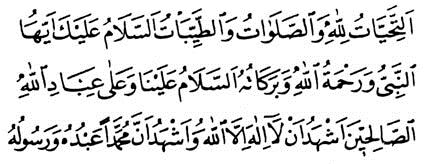 اَلتَّحِيَّاتُ لِلّٰهِ وَالصَّلَوَاتُ وَالطَّيِّبَاتُ اَلسَّلَامُ عَلَيْكَ اَيُّهَا
النَّبِيُّ وَرَحْمَةُ اللّٰهِ وَبَرَكَاتُهُ اَلسَّلَامُ عَلَيْنَا وَعَلٰى عِبَادِ اللّٰهِ
الصَّالِحِيْنَ اَشْهَدُ اَنْ لَّا اِلٰهَ اِلَّا اللّٰهُ وَاَشْهَدُ اَنَّ مُحَمَّدًا عَبْدُهُ وَرَسُوْلُهُ